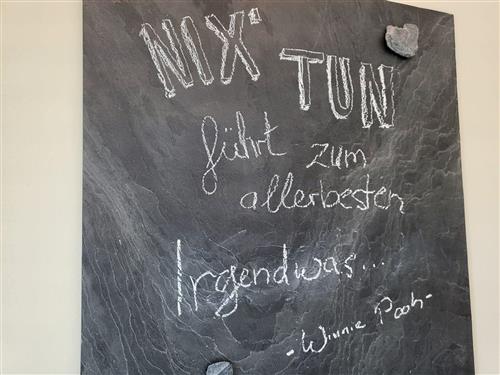 NIX'
TUN
führt zum
allerbesten
Irgendwas...
- Winnie Pooh -